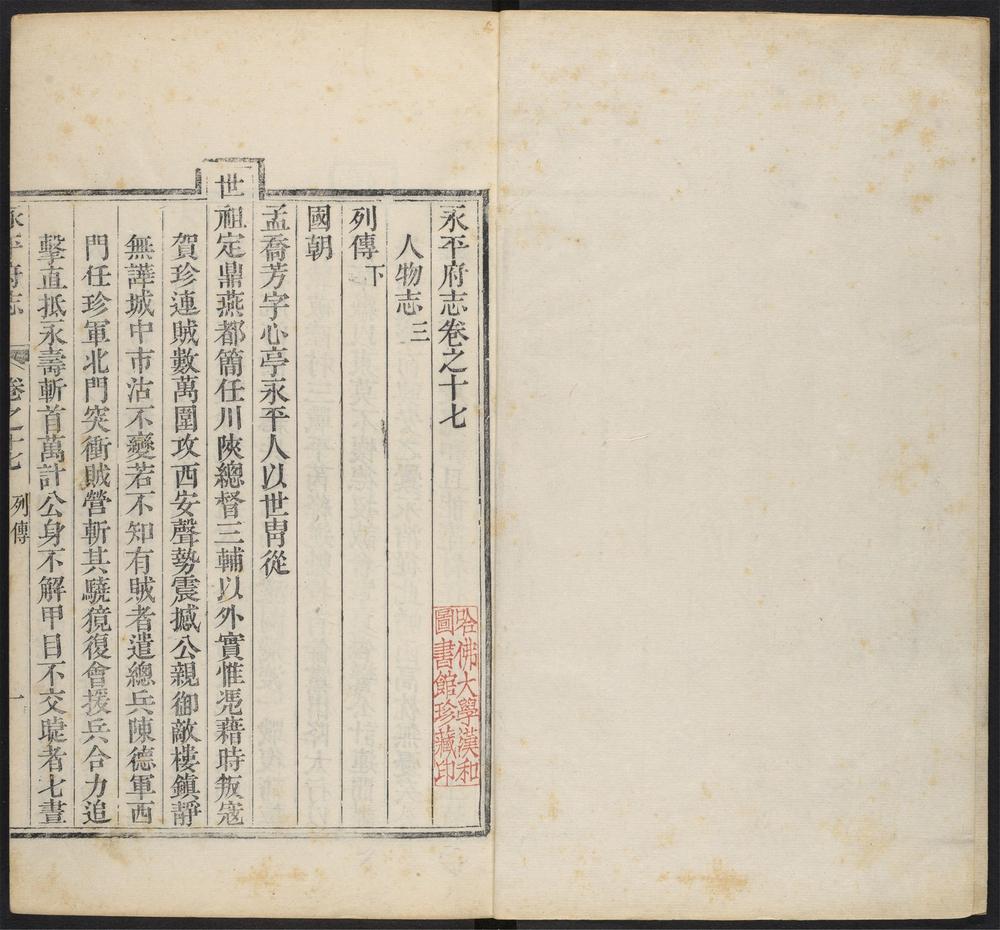 永平府志卷之十七
人物志三
列傳下
國朝
孟喬芳字心亭永平人以世胄從
世祖定鼎燕都簡任川陝總督三輔以外實惟凭藉時叛寇
賀珍連賊數萬圍攻西安聲勢震撼公親御敵樓鎮靜
無譁城中市沽不變若不知有賊者遣總兵陳德軍西
門任珍軍北門突衝賊營斬其驍獍復會援兵合力追
擊直抵永壽斬首萬計公身不解甲目不交睫者七晝
永平府志
卷之十七
列傳
一
哈佛大學漢和
圖書館珍藏印